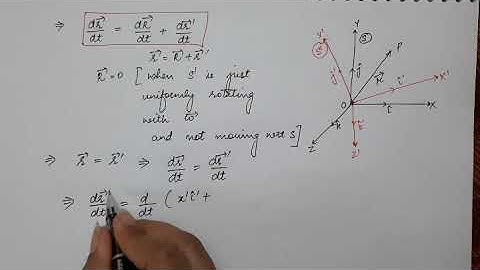 ⇒ dr⃗/dt = dR⃗/dt + dr⃗'/dt
r⃗ = R⃗ + r⃗'
R⃗ = 0 [when s' is just
uniformly rotating
with ω
and not moving wrt s]
⇒ r⃗ = r⃗' ⇒ dr⃗/dt = dr⃗'/dt
⇒ dr⃗'/dt = d/dt ( x'î' +
Y'
Y
S'
S
P
ĵ'
ĵ
r⃗
î'
X'
O
î
X
k̂
Z
Z'